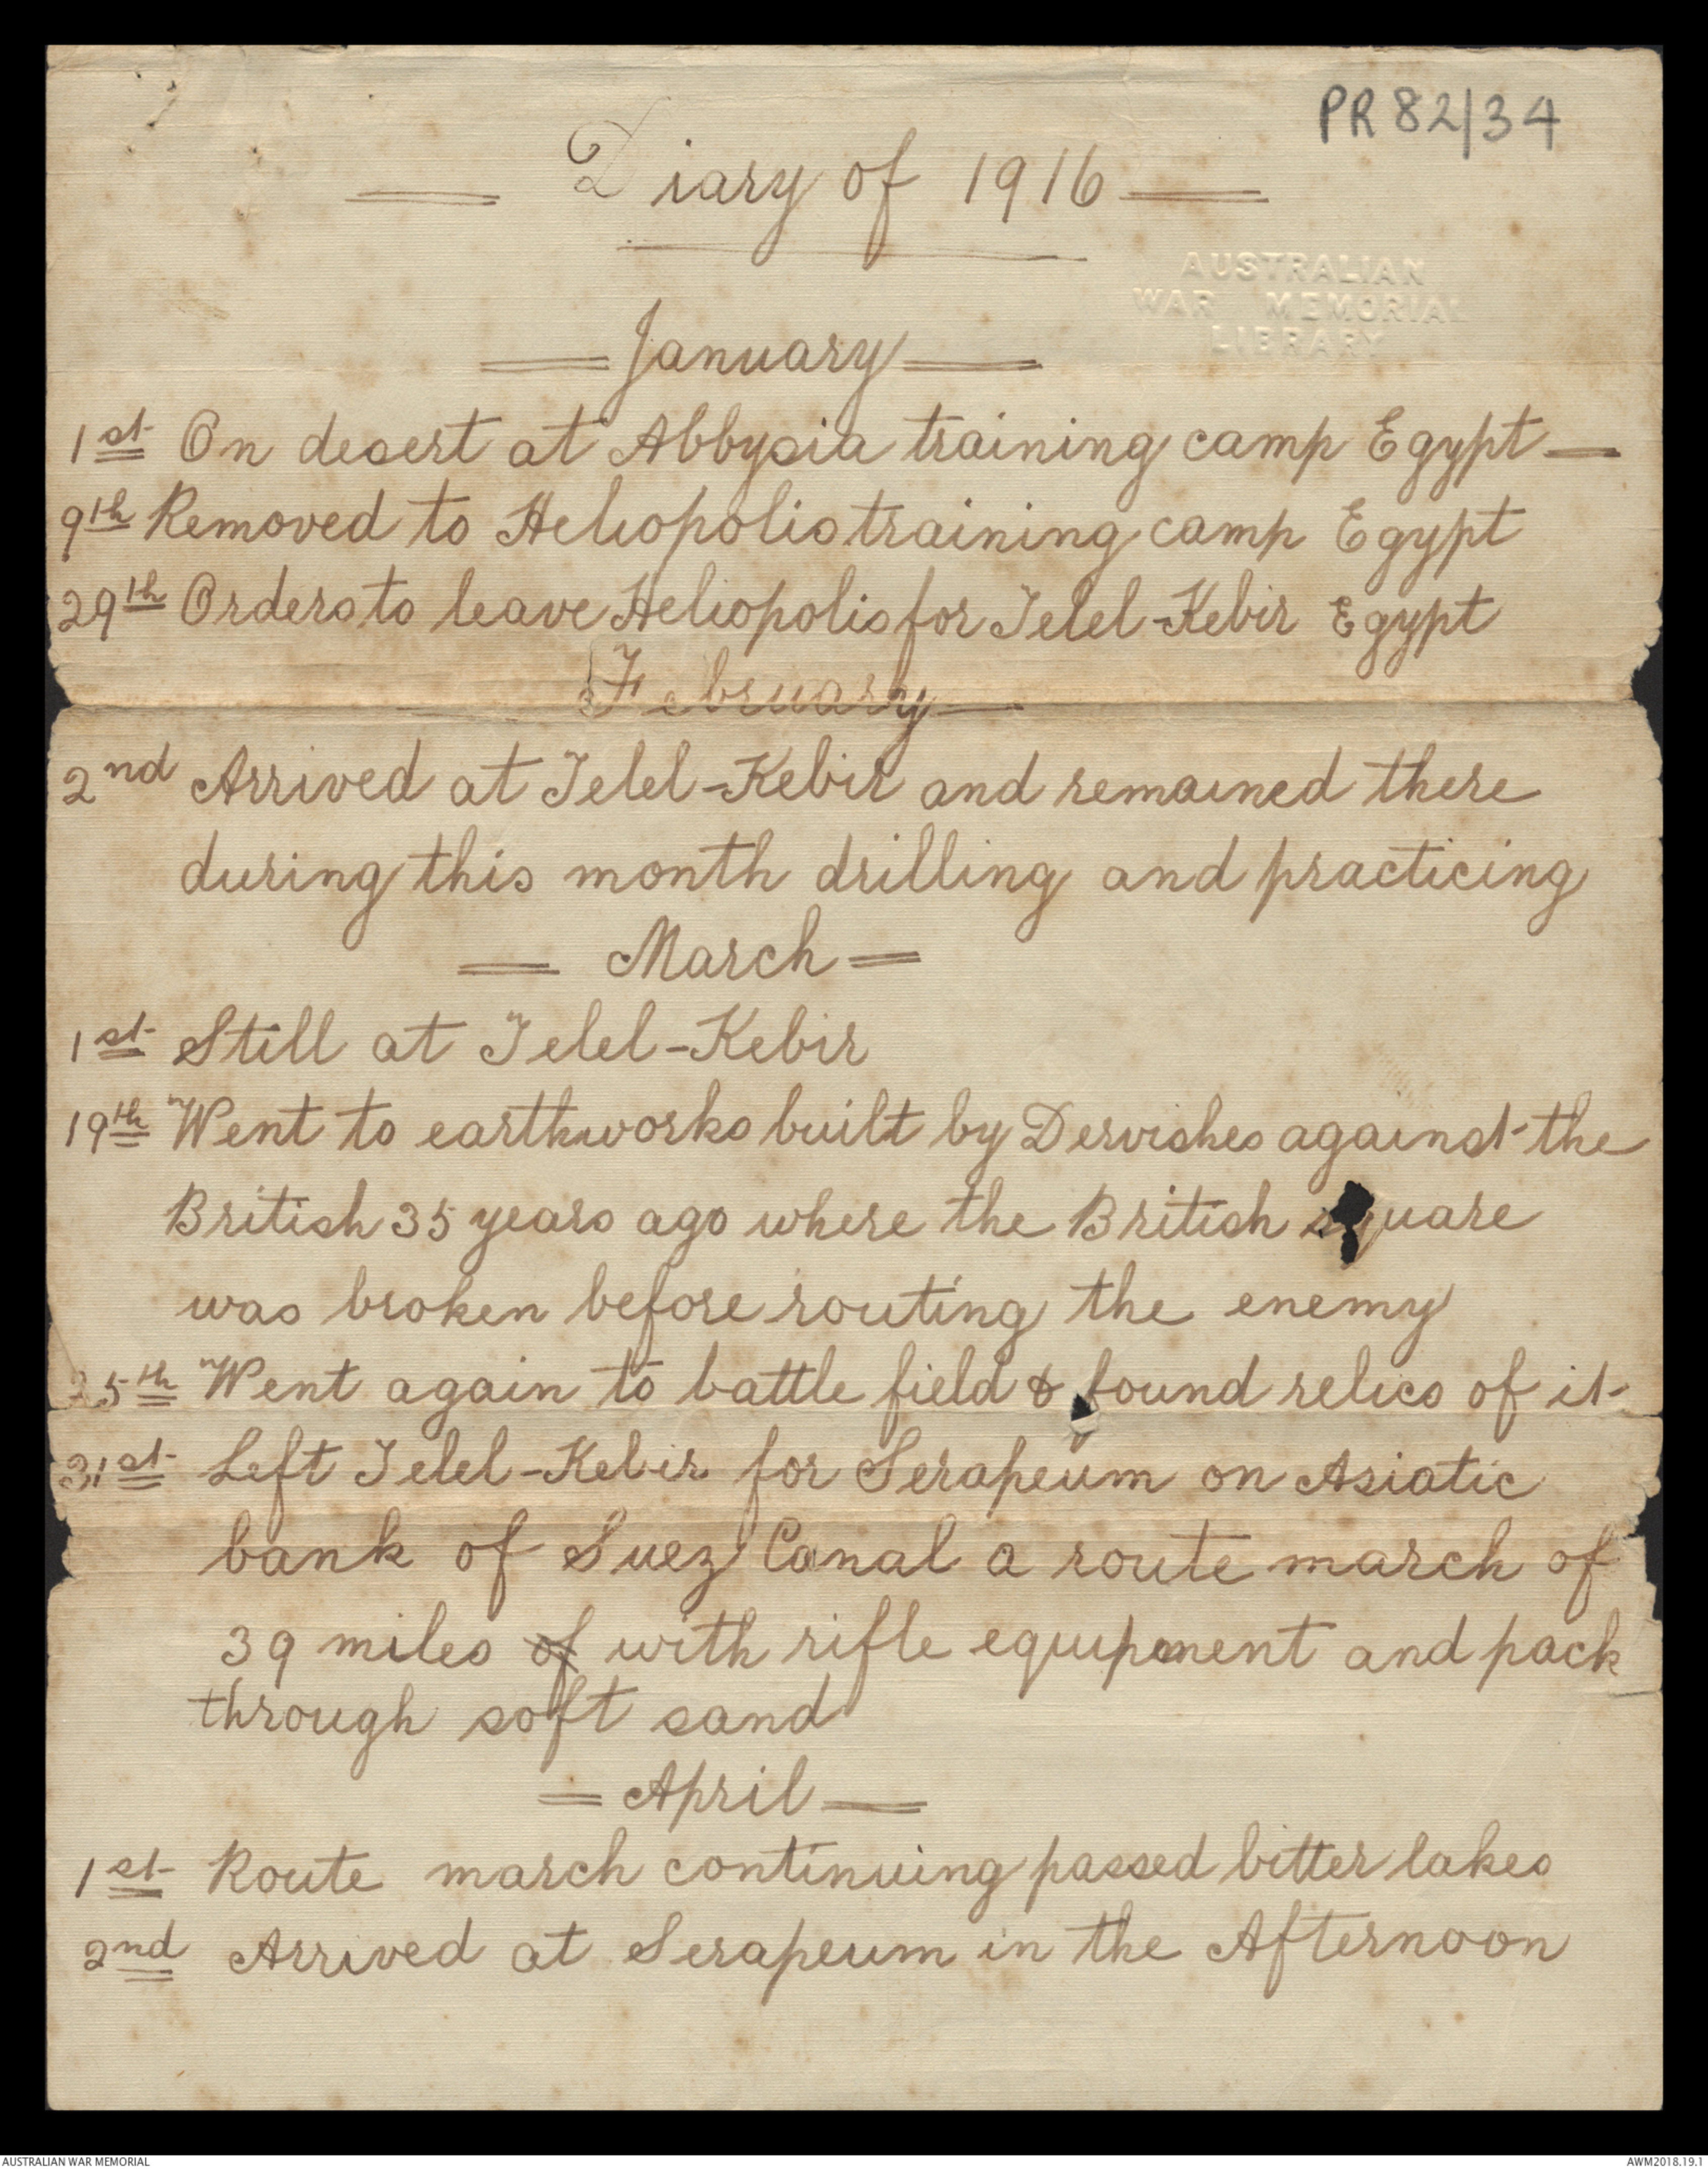 PR 82/34
Diary of 1916
AUSTRALIAN
WAR MEMORIAL
LIBRARY
January
1st On desert at Abbysia training camp Egypt
9th Removed to Heliopolis training camp Egypt
29th Orders to leave Heliopolis for Telel-Kebir Egypt
February
2nd Arrived at Telel-Kebir and remained there
during this month drilling and practicing
March
1st Still at Telel-Kebir
19th Went to earthworks built by Dervishes against the
British 35 years ago where the British square
was broken before routing the enemy
25th Went again to battle field & found relics of it
31st Left Telel-Kebir for Serapeum on Asiatic
bank of Suez Canal a route march of
39 miles of with rifle equipment and pack
through soft sand
April
1st Route march continuing passed bitter lakes
2nd Arrived at Serapeum in the Afternoon
AUSTRALIAN WAR MEMORIAL
AWM2018.19.1